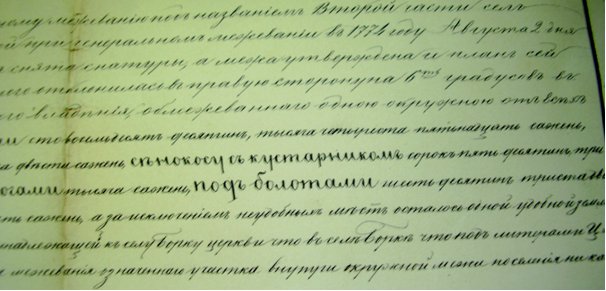 межеванію подъ названіемъ Второй части сел
при генеральномъ межеваніи въ 1774 году Августа 2 дня
снята с натуры, а межа утверждена и планъ сей
отклонилась въ правую сторону на 6 градусовъ въ
владѣнія, обмежеваннаго одною окружною отъ всѣхъ
сто восемьдесятъ десятинъ, тысяча четыреста пятнадцать сажень,
двѣсти сажень, сѣнокосу съ кустарникомъ сорокъ пять десятинъ, три
тысяча сажень, подъ болотами шесть десятинъ триста
сажень, а за исключеніемъ неудобныхъ мѣстъ осталось одной удобной земли
къ селу Борку церкви что въ селѣ Боркѣ что подъ литерами Ц
межеванія означеннаго участка внутри окружной межи поселенія ни ка